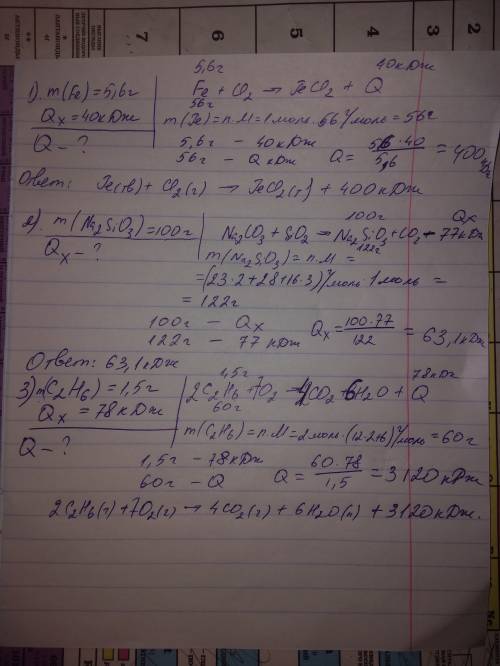 7 6 5 4 3 2
5,6г 40кДж
1). m(Fe)=5,6г Fe + Cl₂ → FeCl₂ + Q
56г
Qx=40кДж m(Fe)=n.M=1моль.56г/моль=56г
Q-? 5,6г - 40кДж
56г - Q кДж Q= 56·40/5,6 =400кДж
Ответ: Fe(тв)+Cl₂(г) → FeCl₂(т)+400кДж
100г Qx
2). m(Na₂SiO₃)=100г Na₂CO₃+SiO₂→Na₂SiO₃+CO₂-77кДж
122г
Qx-? m(Na₂SiO₃)=n.M=
=(23·2+28+16·3)г/моль·1моль=
=122г
100г - Qx
122г - 77кДж Qx= 100·77/122 =63,1кДж
Ответ: 63,1кДж
1,5г 78кДж
3) m(C₂H₆)=1,5г 2C₂H₆+7O₂→4CO₂+6H₂O+Q
60г
Qx=78кДж m(C₂H₆)=n.M=2моль·(12·2+6)г/моль=60г
Q-? 1,5г - 78кДж
60г - Q Q= 60·78/1,5 =3120кДж
2C₂H₆(г)+7O₂(г)→4CO₂(г)+6H₂O(л)+3120кДж.